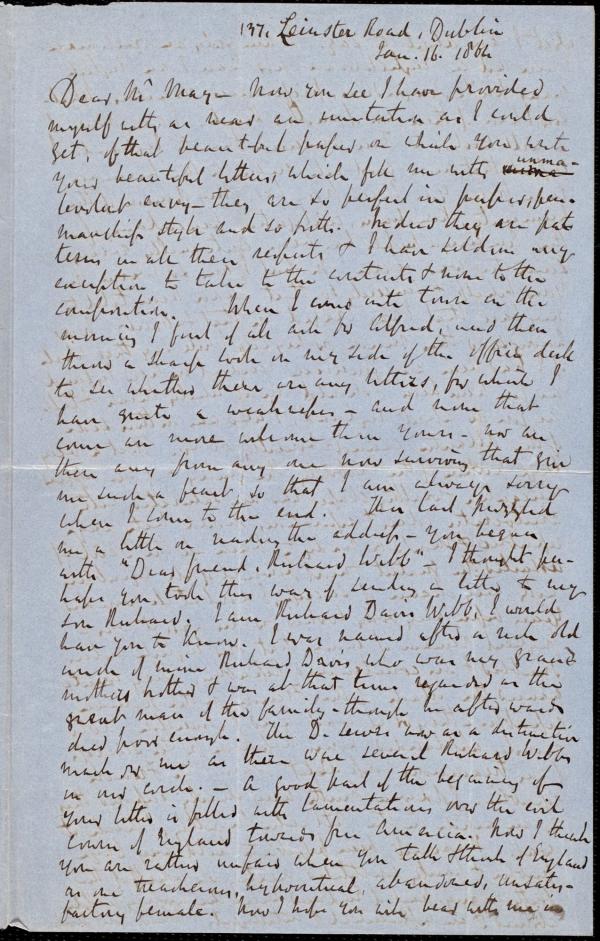 137, Leinster Road, Dublin
Jan. 16. 1864
Dear Mr May - Now you see I have provided
myself with as near an imitation as I could
get, of that beautiful paper on which you write
your beautiful letters, which fill me with unma-
levolent envy - they are so perfect in paper, pen-
manship style and so forth. Indeed they are pat-
terns in all these respects & I have seldom any
exception to take to the contents & none to the
composition. When I come into town in the
morning I first of all ask for Alfred, and then
throw a sharp look on my side of the office desk
to see whether there are any letters, for which I
have quite a weakness - and none that
come are more welcome than yours - nor are
there any from any one now surviving that give
me such a feast, so that I am always sorry
when I come to the end. This last puzzled
me a little on reading the address - you began
with "Dear friend, Richard Webb" - I thought per-
haps you took this way of sending a letter to my
son Richard. I am Richard Davis Webb, I would
have you to know. I was named after a rich old
uncle of mine Richard Davis, who was my grand
mothers brother & was at that time regarded as the
great man of the family - though he afterwards
died poor enough. The D. serves now as a distinction
mark for me as there were several Richard Webbs
in our circle. - A good part of the beginning of
your letter is filled with lamentations over the evil
course of England towards free America. Now I think
you are rather unfair when you talk & think of England
as one treacherous, hypocritical, abandoned, unsatis-
factory female. Now I hope you will bear with me in